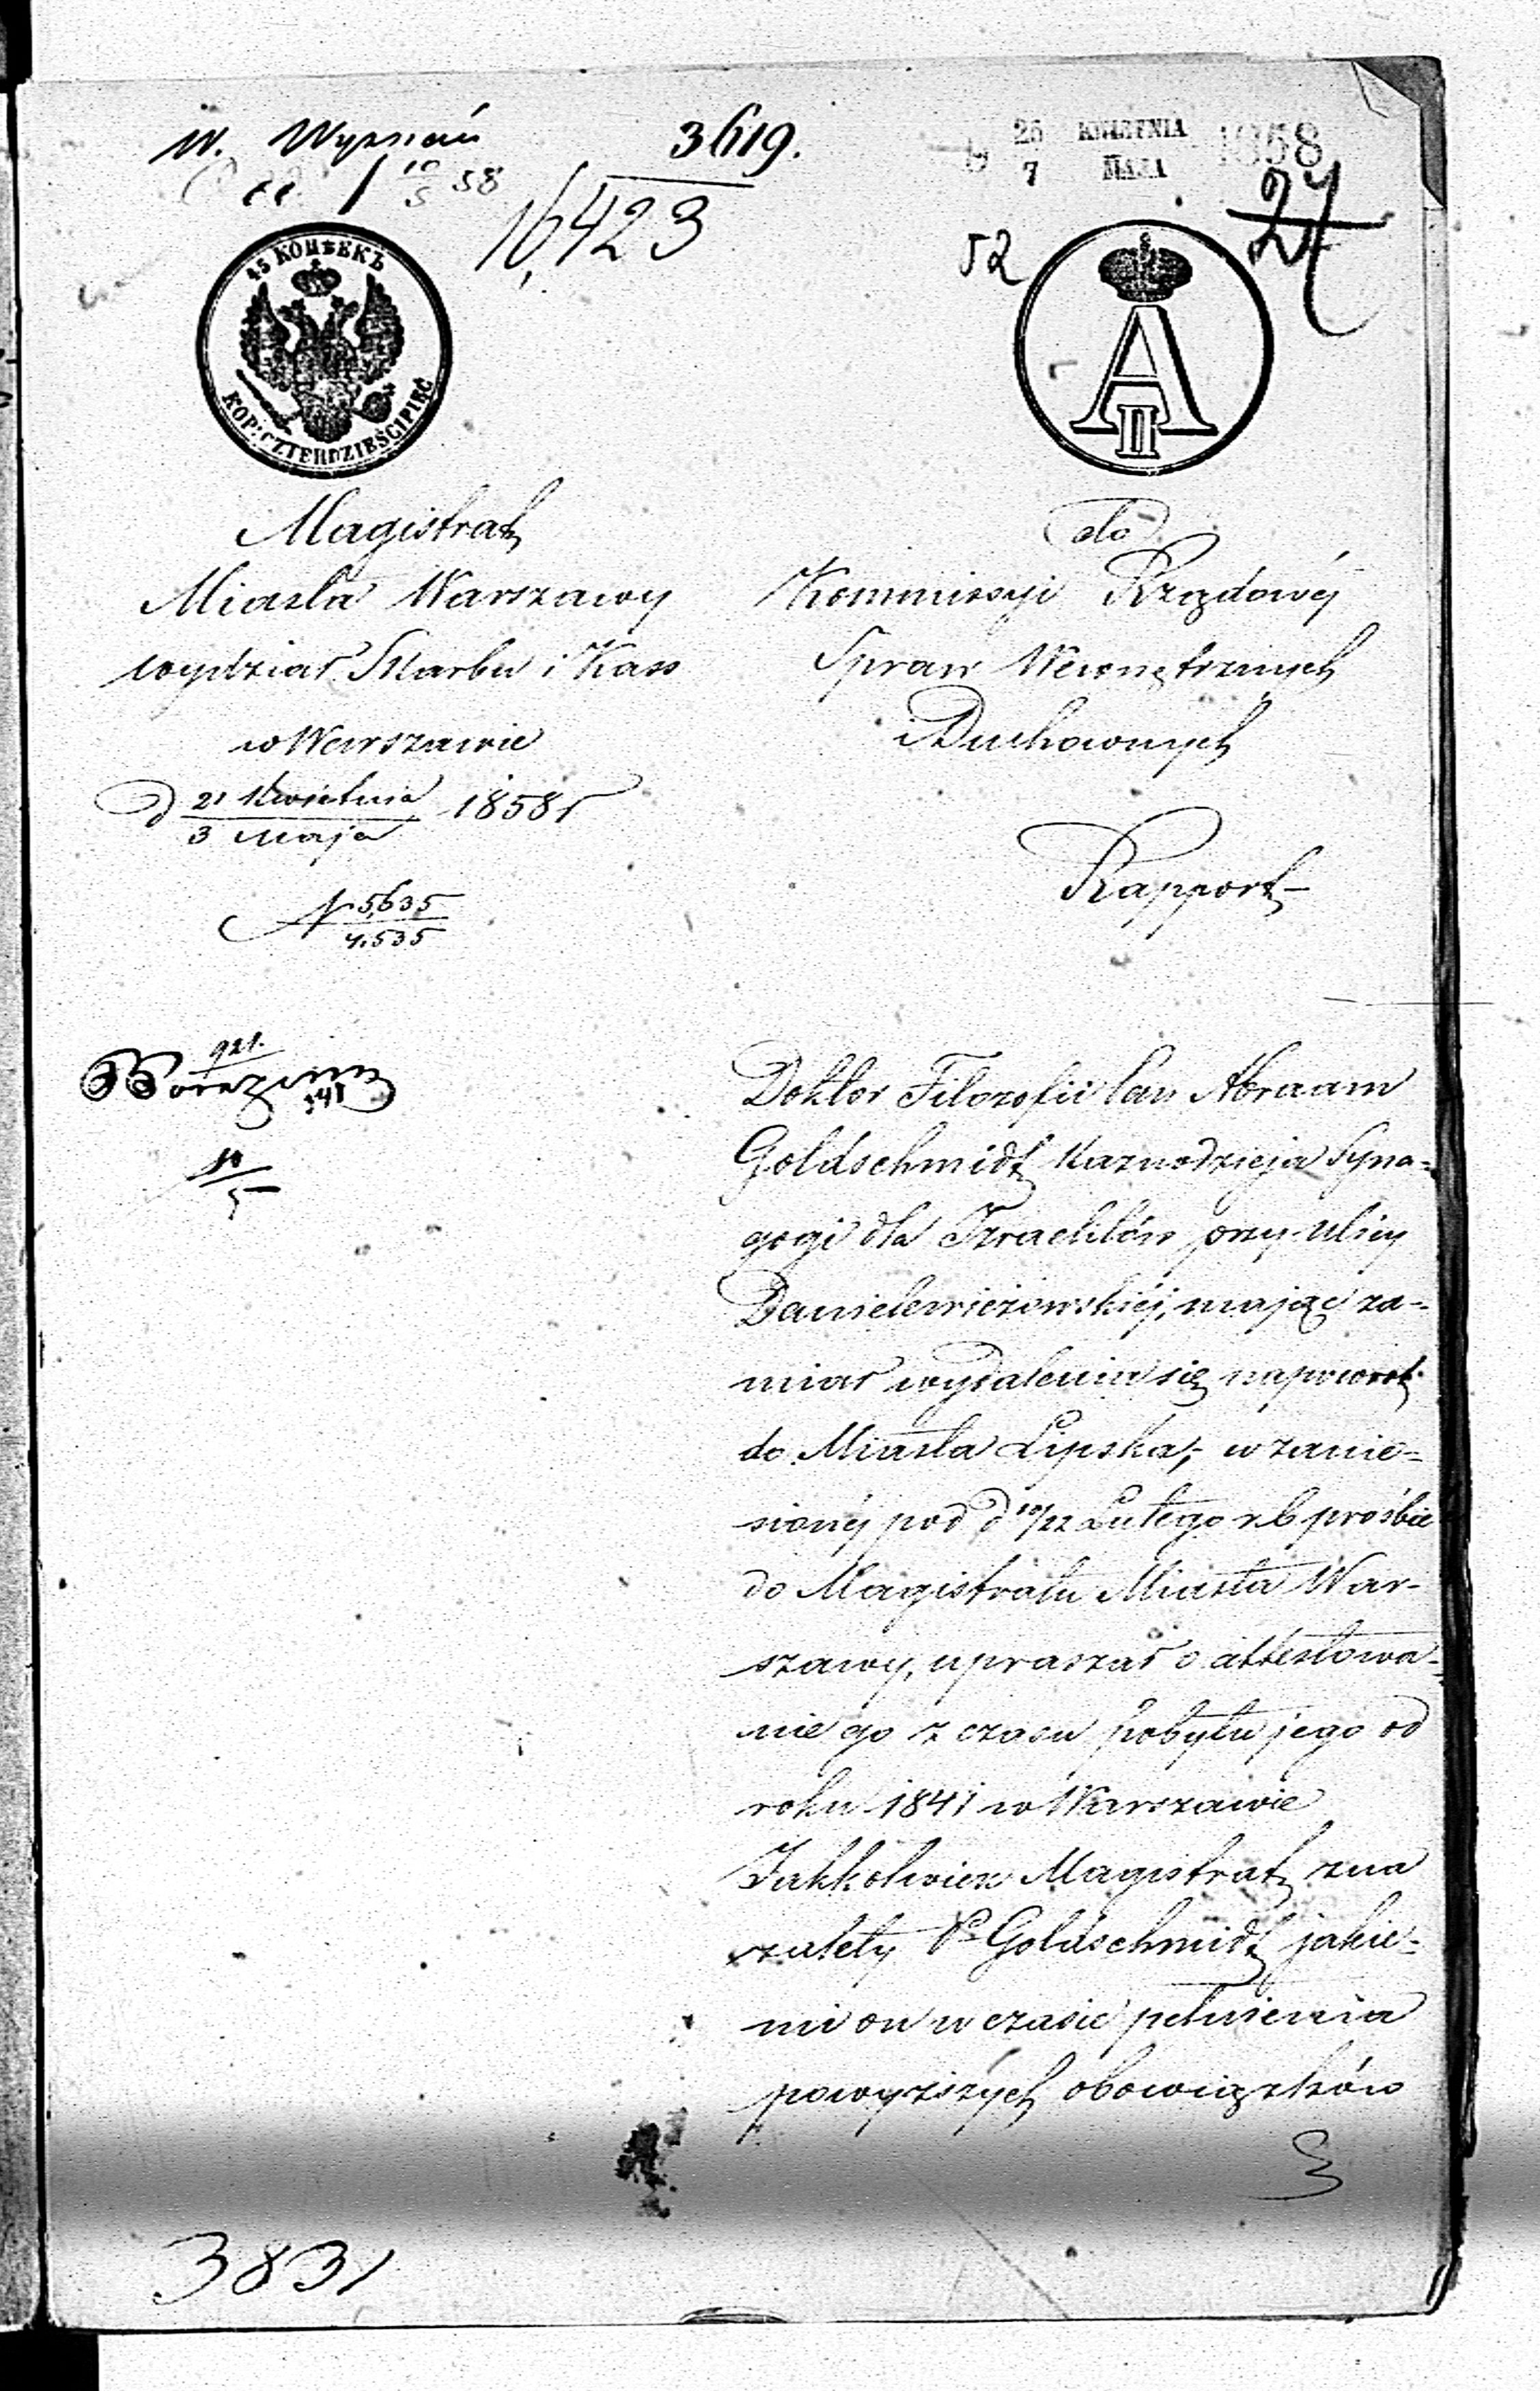 W. Wyznań
3619.
25 KWIETNIA 1858
7 MAJA
10/5 58
16,423
24
52
45 КОПѢЕКЪ
KOP: CZTERDZIEŚCI PIĘĆ
A II
Magistrat
Miasta Warszawy
Wydział Skarbu i Kass
w Warszawie
d 21 Kwietnia 1858 r
3 Maja
N 5,635
4,535
do
Kommissyi Rządowéj
Spraw Wewnętrznych
i Duchownych
Rapport
921.
10
5
Doktor Filozofii Pan Abraam
Goldschmidt Kaznodzieja Syna=
gogi dla Izraelitów przy ulicy
Danielewiczowskiéj, mając za=
miar wydalenia się napowrot
do Miasta Lipska, w zanie=
sionéj pod d 10/22 Lutego r.b prośbie
do Magistratu Miasta War-
szawy, upraszał o attestowa=
nie go z czasu pobytu jego od
roku 1841 w Warszawie
Jakkolwiek Magistrat zna
zalety Pa Goldschmidt jakie=
mi on w czasie pełnienia
powyższych obowiązków
3831